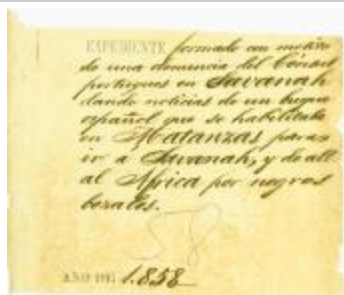 EXPEDIENTE formado con motivo
de una denuncia del Cónsul
portugues en Savanah
dando noticias de un buque
español que se habilitaba
en Matanzas para
ir a Savanah, y de allí
al Africa por negros
bozales.
58
AÑO DE 1.858